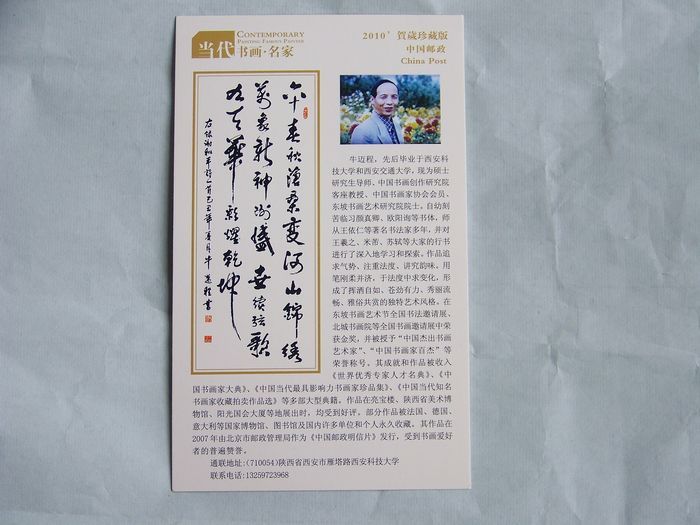 CONTEMPORARY
PAINTING FAMOUS PAINTER
当代书画·名家
2010' 賀歲珍藏版
中国邮政
China Post
六十春秋滄桑變河山錦綉
萬象新神州盛世續弦歌
九天華彩耀乾坤
牛迈程，先后毕业于西安科
技大学和西安交通大学，现为硕士
研究生导师、中国书画创作研究院
客座教授、中国书画家协会会员、
东坡书画艺术研究院院士。自幼刻
苦临习颜真卿、欧阳询等书体，师
从王依仁等著名书法家多年，并对
王羲之、米芾、苏轼等大家的行书
进行了深入地学习和探索。作品追
求气势、注重法度、讲究韵味，用
笔刚柔并济，于法度中求变化，形
成了挥洒自如、苍劲有力、秀丽流
畅、雅俗共赏的独特艺术风格。在
东坡书画艺术节全国书法邀请展、
北城书画院等全国书画邀请展中荣
获金奖，并被授予“中国杰出书画
艺术家”、“中国书画家百杰”等
荣誉称号。其成就和作品被收入
《世界优秀专家人才名典》、《中
国书画家大典》、《中国当代最具影响力书画家珍品集》、《中国当代知名
书画家收藏拍卖作品选》等多部大型典籍。作品在亮宝楼、陕西省美术博
物馆、阳光国会大厦等地展出时，均受到好评。部分作品被法国、德国、
意大利等国家博物馆、图书馆及国内许多单位和个人永久收藏。其作品在
2007年由北京市邮政管理局作为《中国邮政明信片》发行，受到书画爱好
者的普遍赞誉。
通联地址:(710054)陕西省西安市雁塔路西安科技大学
联系电话:13259723968